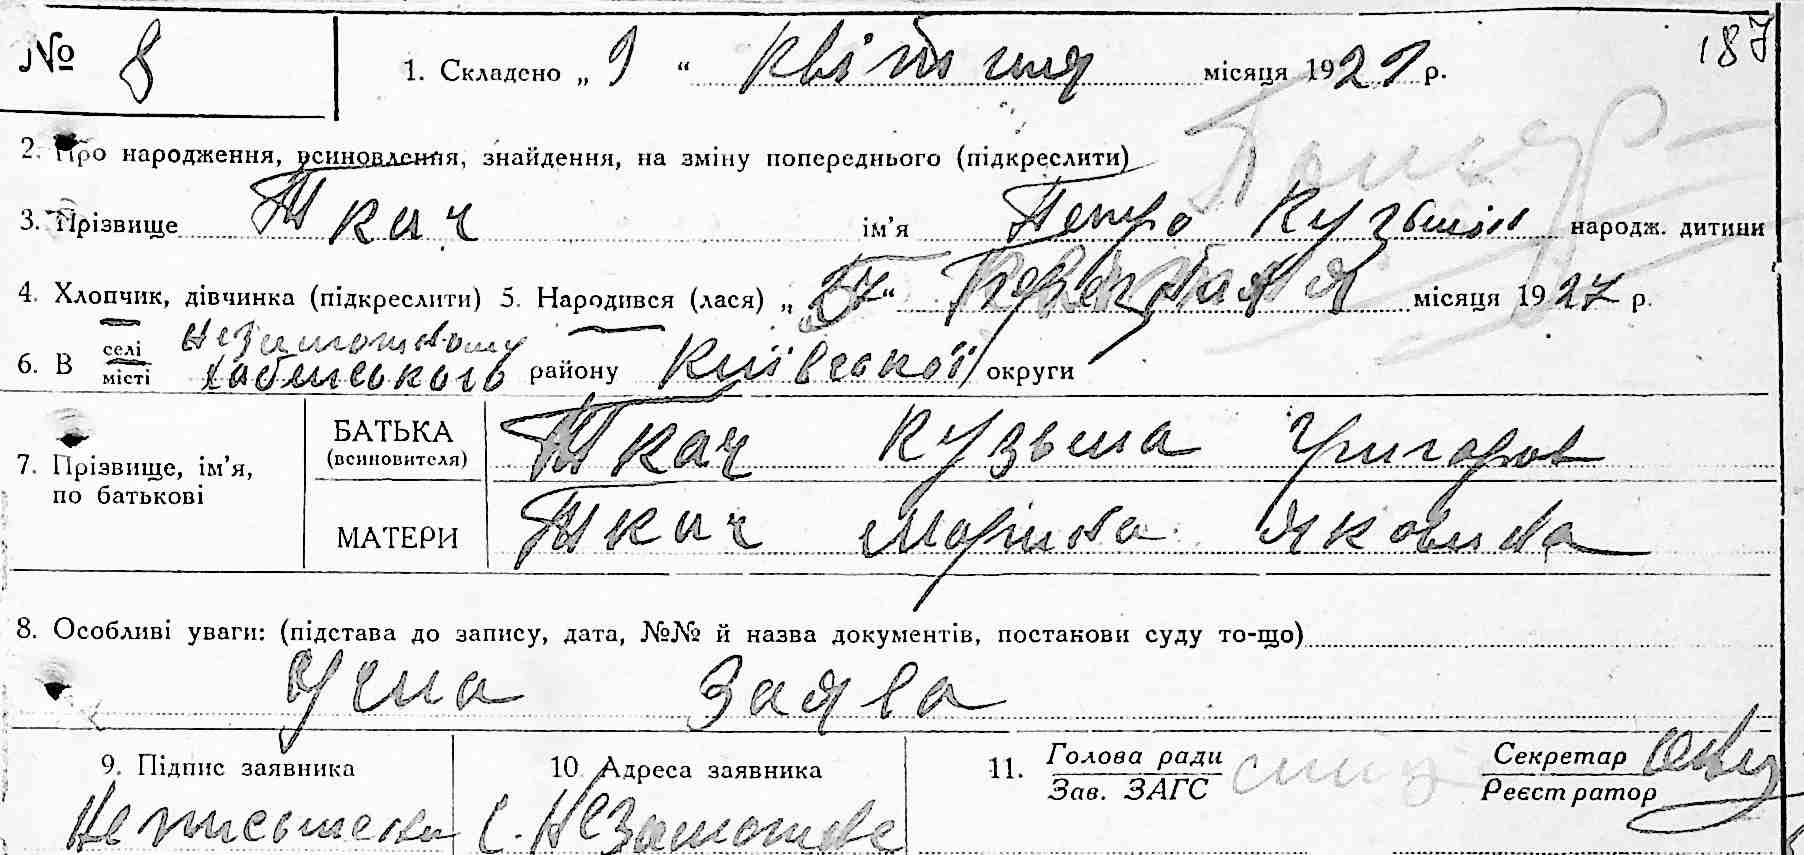 № 8
1. Складено „ 9 “ квітня місяця 1929 р.
187
2. Про народження, всиновлення, знайдення, на зміну попереднього (підкреслити)
3. Прізвище Ткач ім'я Петро Кузьмін народж. дитини
4. Хлопчик, дівчинка (підкреслити) 5. Народився (лася) „ “ місяця 1927 р.
6. В селі Незаможному
місті Хабенського району Київської округи
7. Прізвище, ім'я,
по батькові
БАТЬКА
(всиновителя)
Ткач Кузьма Григоров
МАТЕРИ
Ткач Марина Яковівна
8. Особливі уваги: (підстава до запису, дата, №№ й назва документів, постанови суду то-що)
Усна Заява
9. Підпис заявника
Неписьмена
10. Адреса заявника
с. Незаможне
11. Голова ради
Зав. ЗАГС
Секретар
Реєстратор